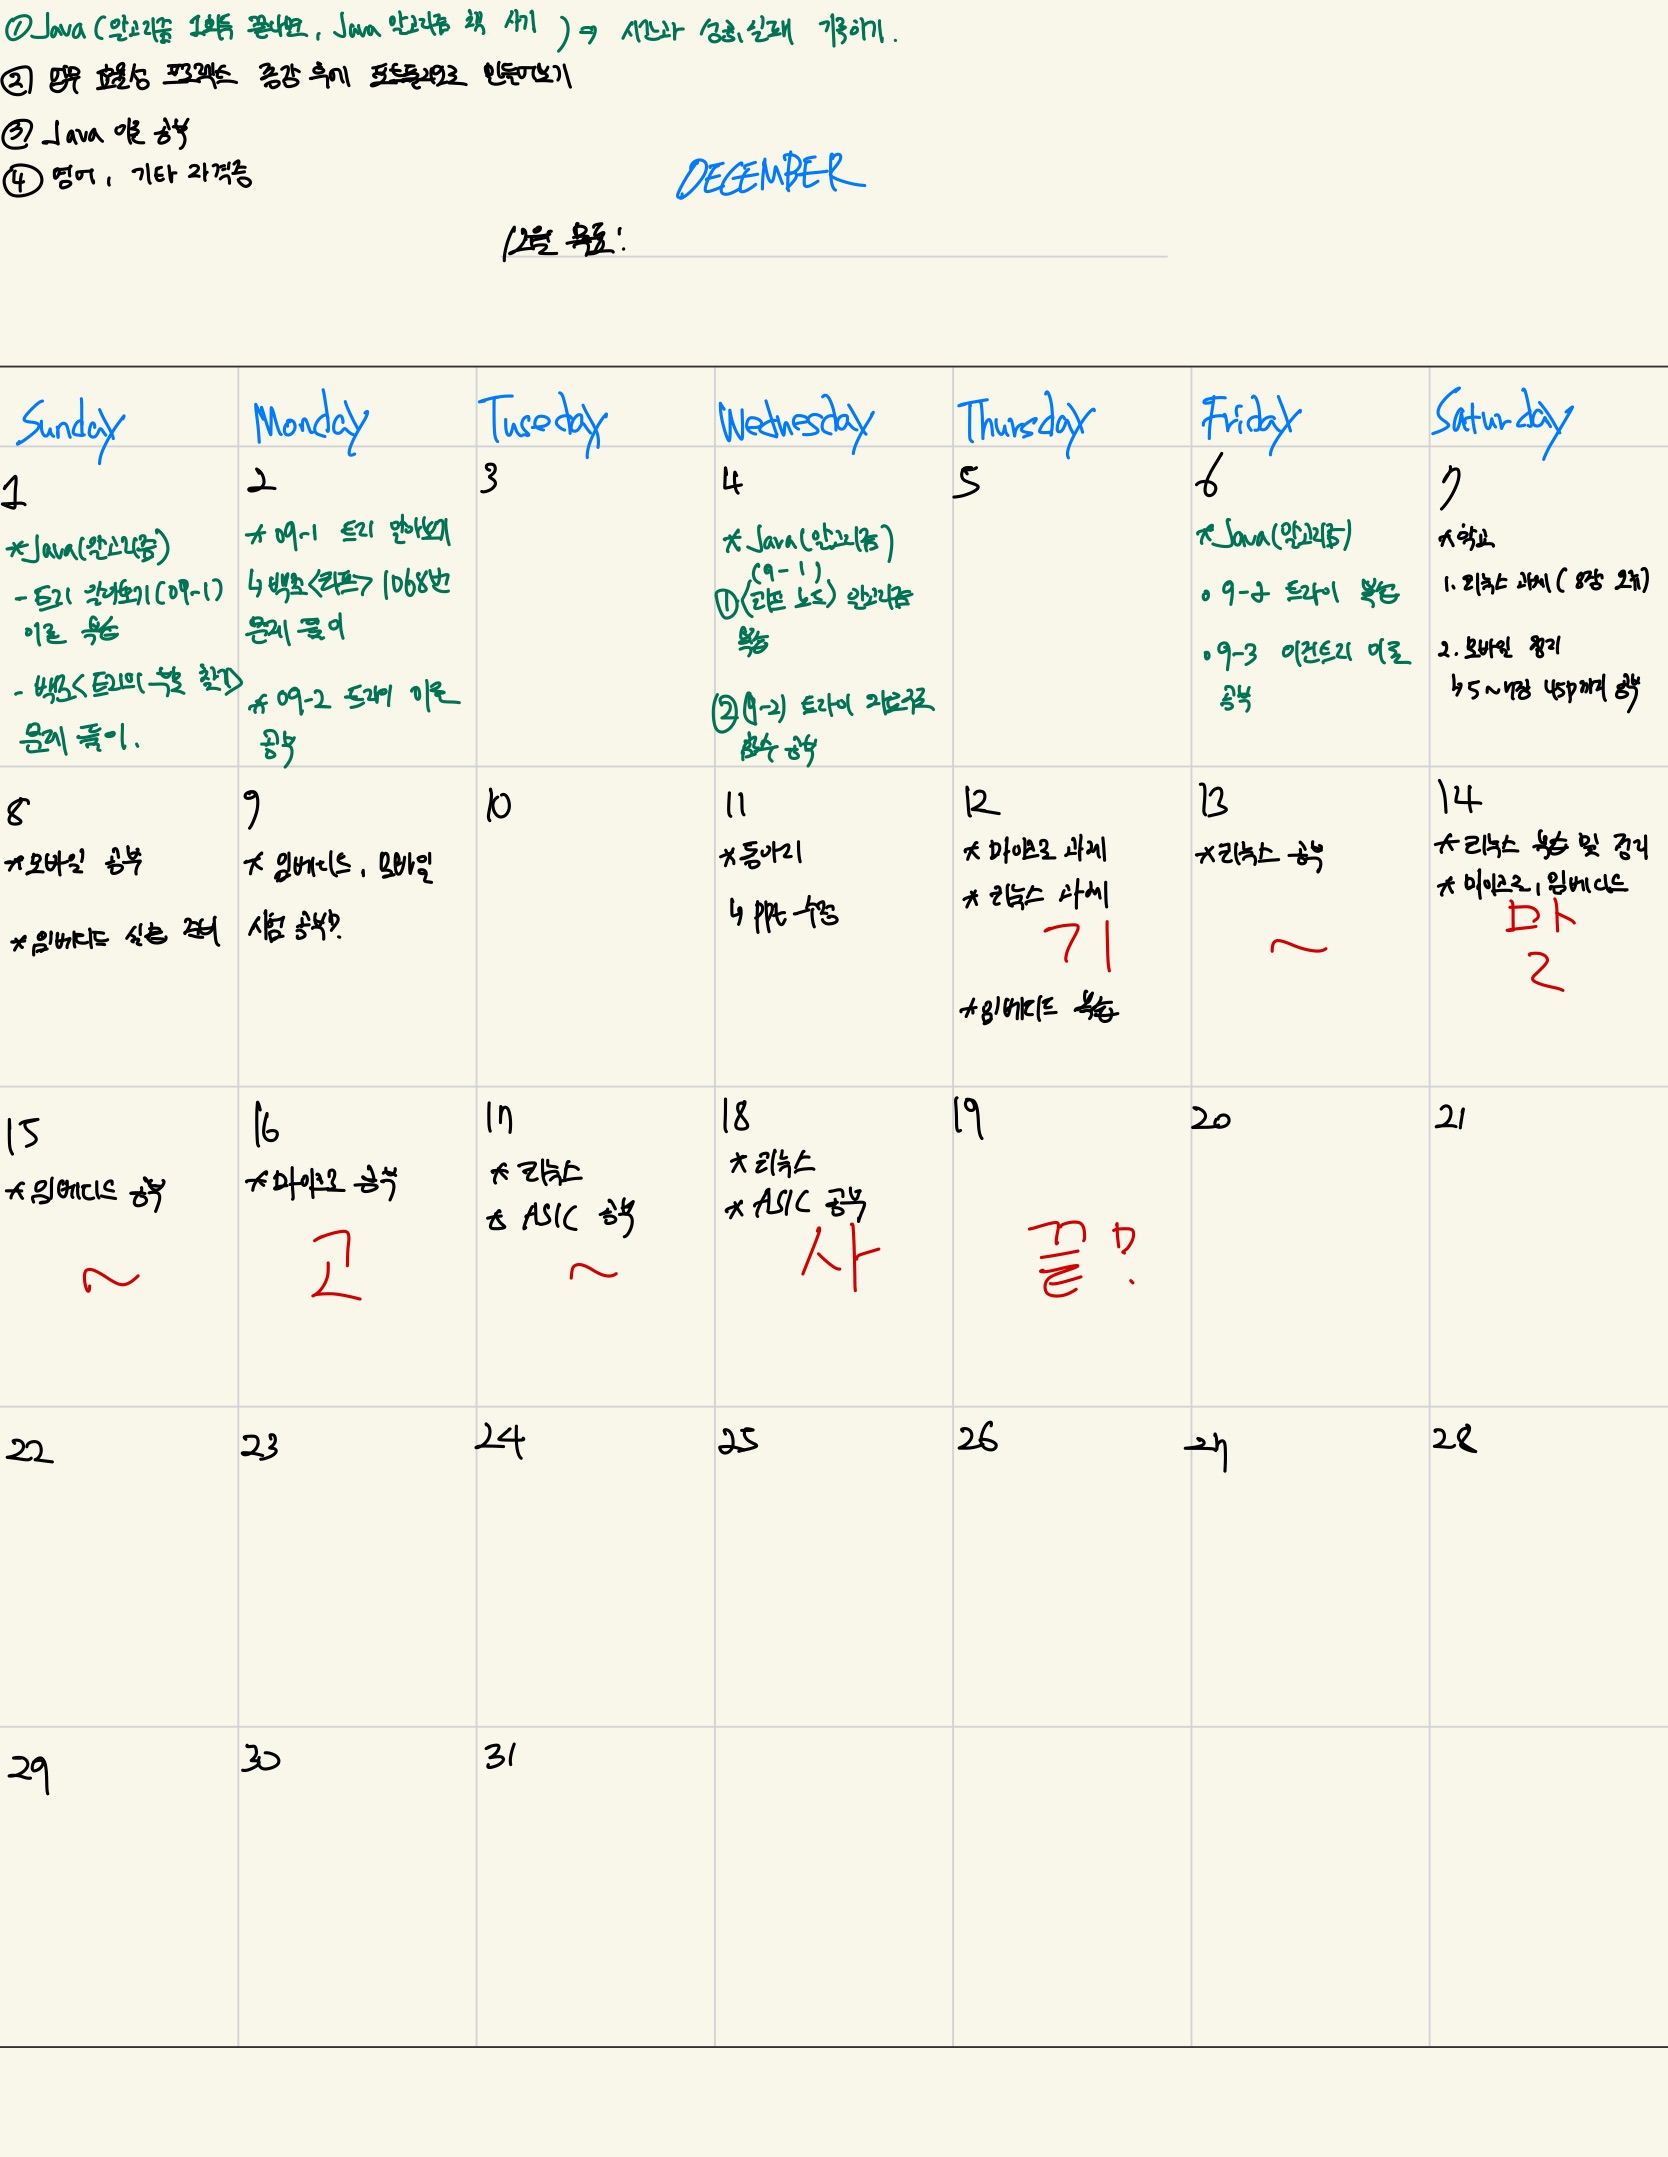 ① Java (알고리즘 1회독 끝나면, Java 알고리즘 책 사기) ⇒ 시간과 성공, 실패 기록하기.
② 업무 효율성 프로젝트 종강 후에 포트폴리오로 만들어보기
③ Java 이론 공부
④ 영어, 기타 자격증
DECEMBER
12월 목표:
Sunday Monday Tuseday Wednesday Thursday Friday Saturday
1
*Java(알고리즘)
- 트리 알아보기(09-1)
이론 복습
- 백준<트리의 부모 찾기>
문제 풀이.
2
* 09-1 트리 알아보기
↳ 백준<리프> 1068번
문제 풀이
* 09-2 트라이 이론
공부
3
4
* Java(알고리즘)
(9-1)
①<리프 노드> 알고리즘
복습
② (9-2) 트라이 자료구조
함수 공부
5
6
*Java(알고리즘)
∘ 9-2 트라이 복습
∘ 9-3 이진트리 이론
공부
7
*학교
1. 리눅스 과제(8장 오류)
2. 모바일 정리
↳ 5~7장 45p까지 공부
8
*모바일 공부
*임베디드 실습 준비
9
* 임베디드, 모바일
시험 공부?
10
11
*동아리
↳ PPt 수정
12
* 마이크로 과제
* 리눅스 과제
기
*임베디드 복습
13
*리눅스 공부
~
14
*리눅스 복습 및 정리
* 마이크로, 임베디드
말
15
* 임베디드 공부
~
16
*마이크로 공부
고
17
* 리눅스
* ASIC 공부
~
18
* 리눅스
* ASIC 공부
사
19
끝?
20
21
22
23
24
25
26
27
28
29
30
31